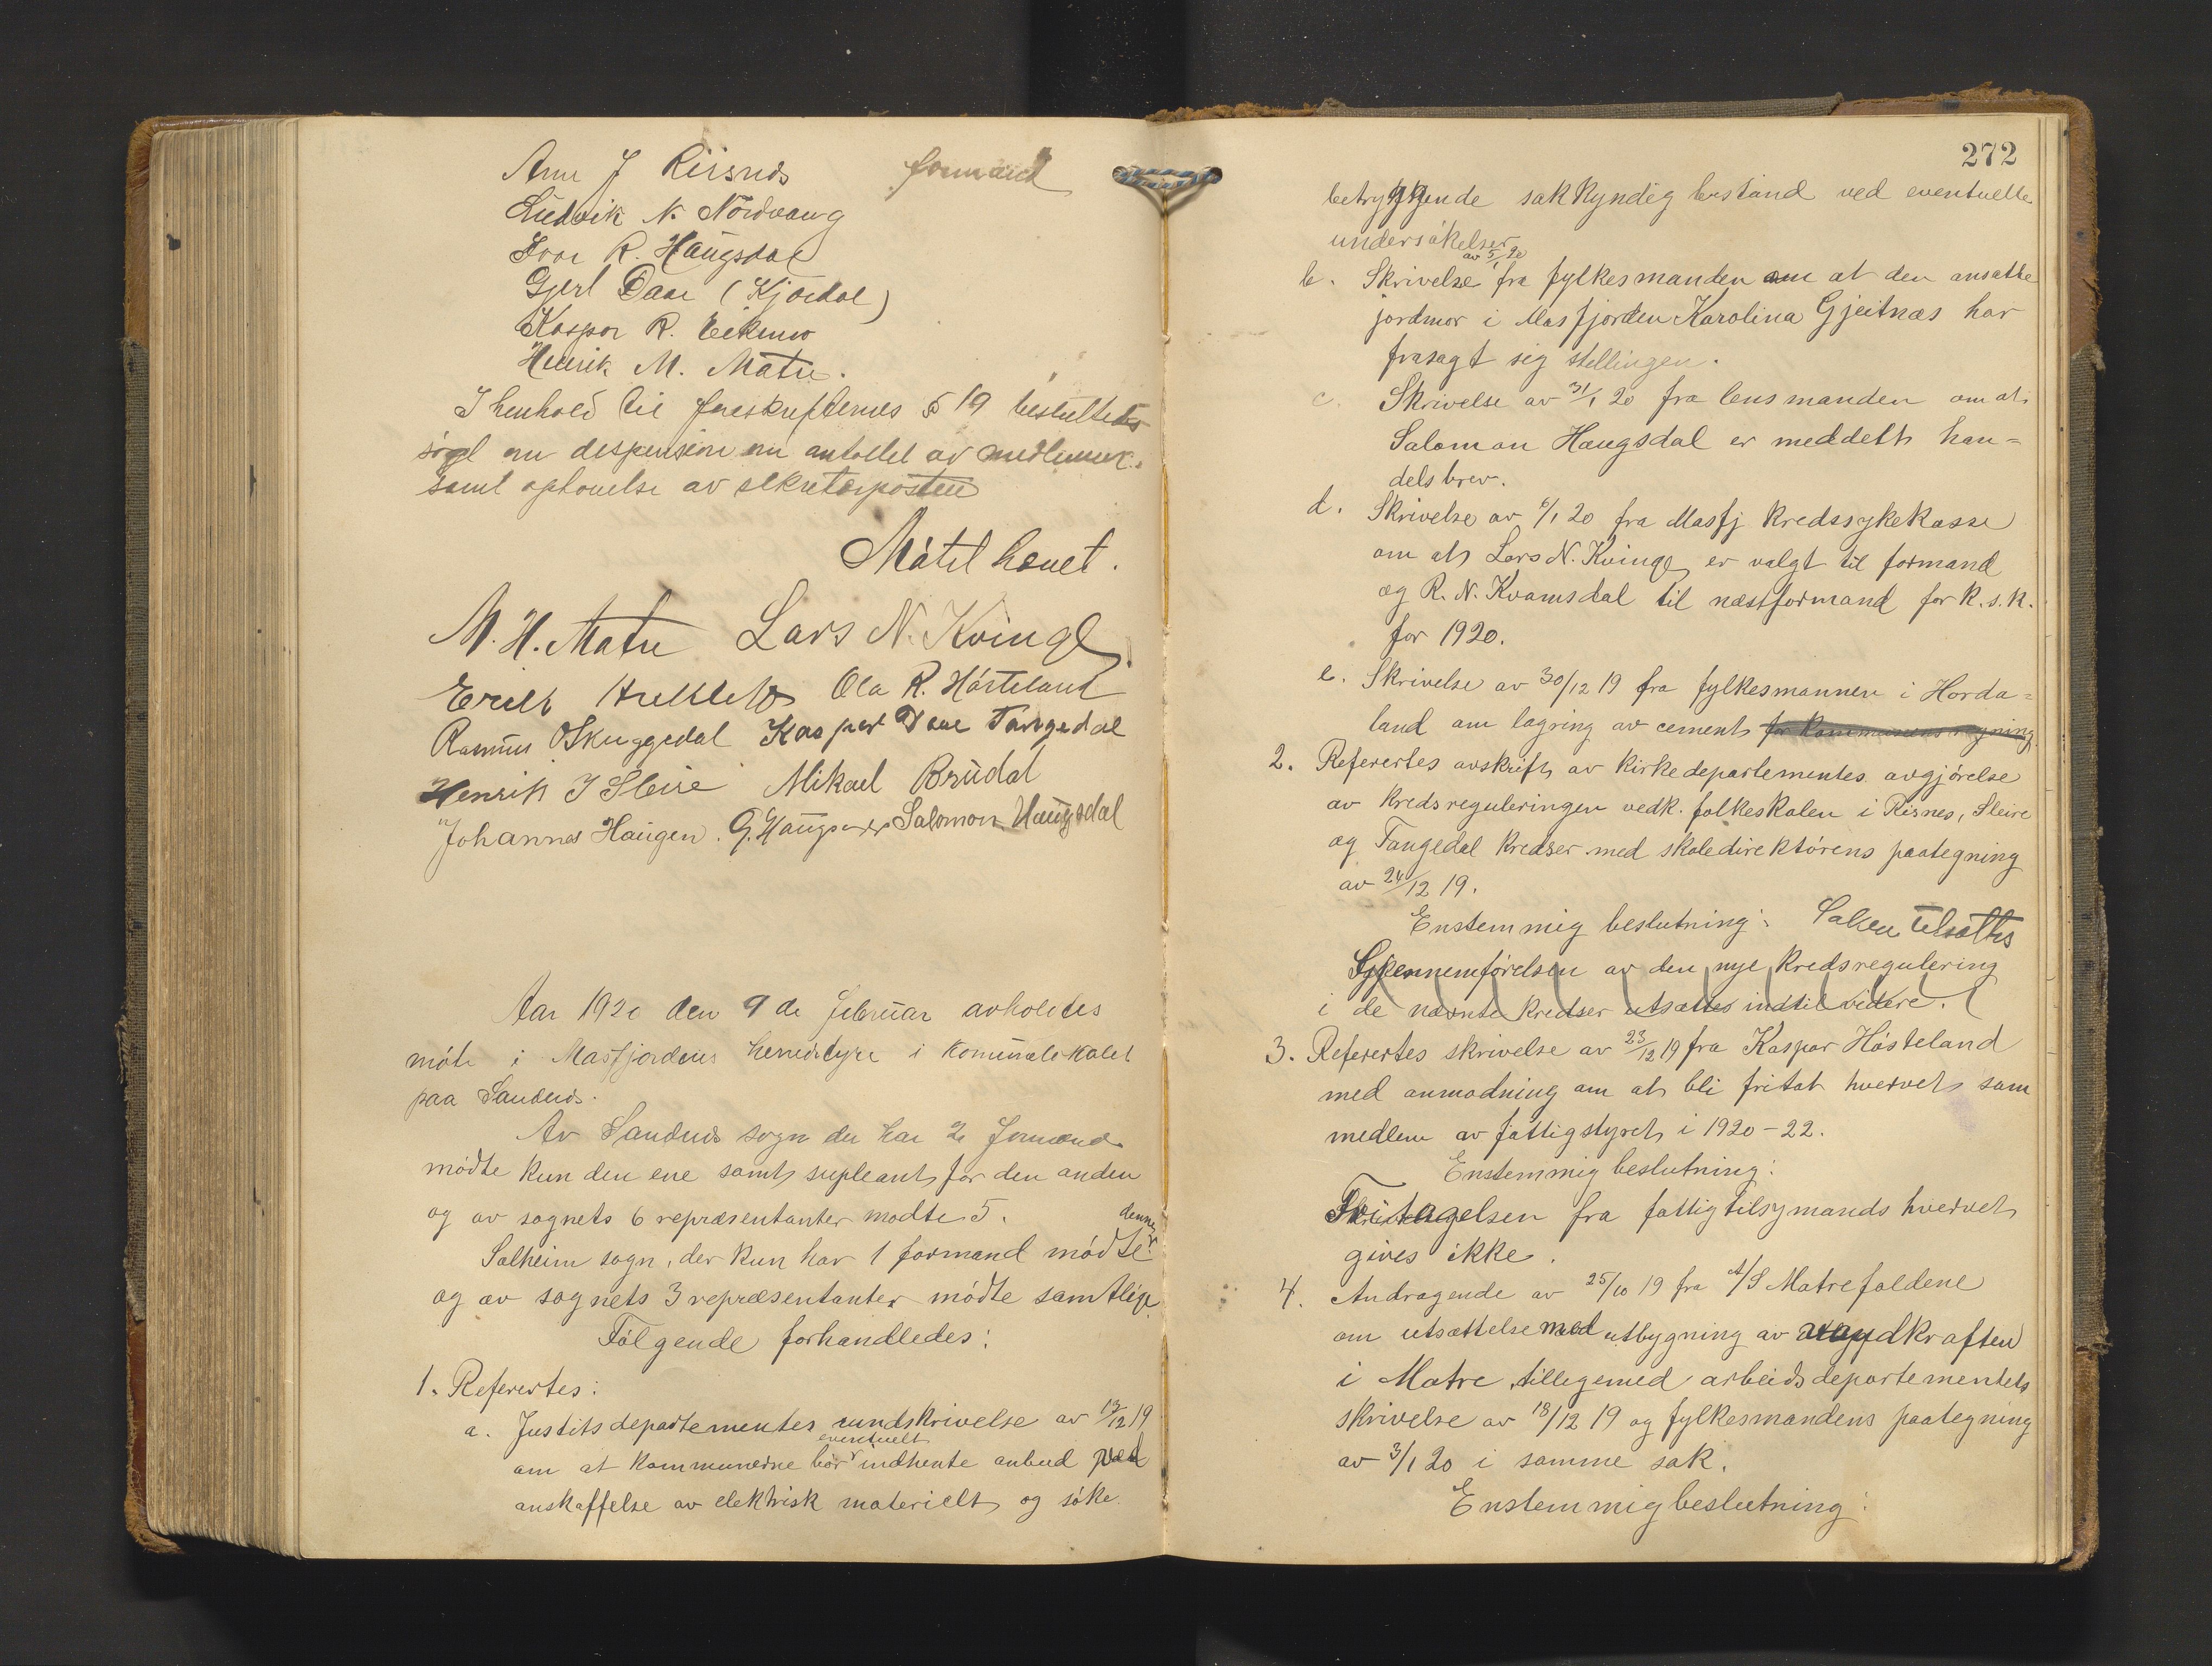 Arne J Riisnes formand
Ludvik N. Nordvang
Ivar R. Haugsdal
Gjert Daae (Kjordal)
Kaspar R. Eikemo
Henrik M. Matre.
I henhold til forskrifternes § 19 besluttedes
søgt om dispension om antallet av medlemmer
samt ophævelse av sekretærposten
Møtet hævet.
M. H. Matre Lars N. Kvinge
Ola R. Hosteland
Rasmus O Skuggedal Kaspar Daae Tangedal
Henrik J Sleire Mikael Brudal
Johannes Haugen. G. Haugsvær Salomon Haugsdal
Aar 1920 den 9de februar avholdtes
møte i Masfjordens herredstyre i komunelokalet
paa Sandnes.
Av Sandnes sogn der har 2 formænd
mødte kun den ene samt supleant for den anden
og av sognets 6 repræsentanter mødte 5.
Solheim sogn, der kun har 1 formand mødte denne
og av sognets 3 repræsentanter mødte samtlige.
Følgende forhandledes:
1. Referertes:
a. Justitsdepartementes rundskrivelse av 17/12 19
om at kommunerne bør eventuelt indhente anbud ved
anskaffelse av elektrisk materielt og søke
272
betryggende sakkyndig bistand ved eventuelle
undersøkelser
b. Skrivelse av 5/1 20 fra fylkesmanden om at den ansatte
jordmor i Masfjorden Karolina Gjeitnæs har
frasagt sig stellingen.
c. Skrivelse av 31/1 20 fra lensmanden om at
Salomon Haugsdal er meddelt han=
delsbrev.
d. Skrivelse av 6/1 20 fra Masfj kredssykekasse
om at Lars N. Kvinge er valgt til formand
og R. N. Kvamsdal til næstformand for k.s.k.
for 1920.
e. Skrivelse av 30/12 19 fra fylkesmannen i Horda=
land om lagring av cement for kommunens regning.
2. Referertes avskrift av kirkedepartementes avgjørelse
av kredsreguleringen vedk. folkeskolen i Risnes, Sleire
og Tangedal kredser med skoledirektørens paategning
av 24/12 19.
Enstemmig beslutning: Saken utsættes
Gjennemførelsen av den nye kredsregulering
i de nævnte kredser utsættes indtil videre.
3. Referertes skrivelse av 23/12 19 fra Kaspar Hosteland
med anmodning om at bli fritat hvervet som
medlem av fattigstyret i 1920-22.
Enstemmig beslutning:
Fritagelsen fra fattigtilsymands hvervet
gives ikke.
4. Andragende av 25/10 19 fra A/S Matrefaldene
om utsættelse med utbygning av vandkraften
i Matre tillegemed arbeidsdepartementets
skrivelse av 18/12 19 og fylkesmandens paategning
av 3/1 20 i samme sak.
Enstemmig beslutning: